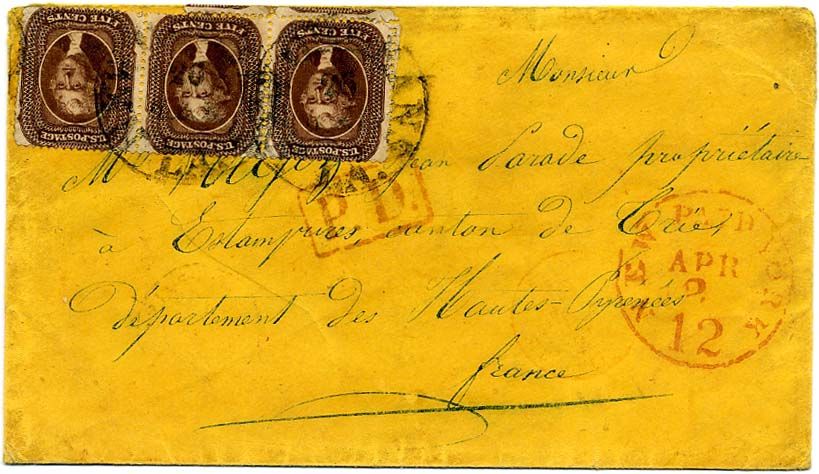 FIVE CENTS
U.S. POSTAGE
FIVE CENTS
U.S. POSTAGE
FIVE CENTS
U.S. POSTAGE
LA.
Monsieur
Jean Parade propriétaire
P.D.
à Estampures, canton de Trie,
département des Hautes-Pyrenées
france
NEW YORK
PAID
APR
12